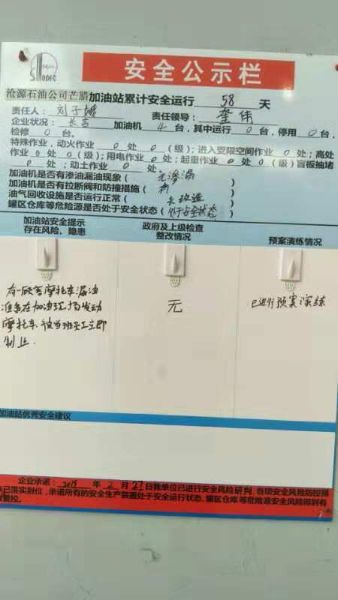 安全公示栏
沧源石油公司芒腊加油站累计安全运行 58 天
责任人： 责任领导：
企业状况： 加油机 4 台，其中运行 0 台，停用 0 台，
检修 0 台。
特殊作业，动火作业 0 处 0（级）；进入受限空间作业 0 处；高处
作业 0 处 0（级）；用电作业 0 处；起重作业 0 处 0（级）盲板抽堵
0 处；动土作业 0 处 0（级）
加油机是否有渗油漏油现象（无渗漏）
加油机是否有拉断阀和防撞措施（有）
油气回收设施是否运行正常（未改造）
罐区仓库等危险源是否处于安全状态（处于安全状态）
加油站安全提示
存在风险、隐患
政府及上级检查
整改情况
预案演练情况
有一顾客摩托车加油
准备在加油现场发动
摩托车，被当班员工立即
制止。
无
已进行预案演练
加油站优秀安全建议
企业承诺：2018 年 2 月 27日我单位已进行安全风险研判，各项安全风险防控措
施已落实到位，承诺所有的安全生产装置处于安全运行状态，罐区仓库等危险源安全风险得到有
效管控。